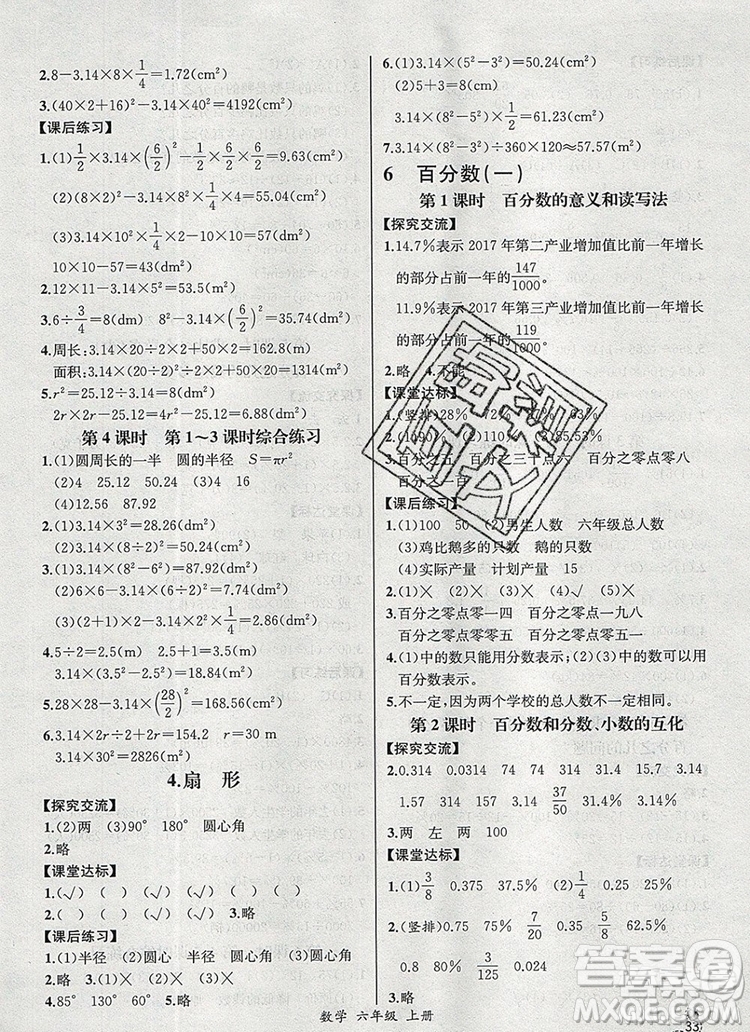 2.8-3.14×8×1/4=1.72(cm²)
3.(40×2+16)²-3.14×40²=4192(cm²)
【课后练习】
1.(1)1/2×3.14×(6/2)²-1/2×6×6/2×1/2=9.63(cm²)
(2)8×8-3.14×(8/2)²=13.76(cm²)
(3)10×10-3.14×10²×1/4=21.5(cm²)
10×10-21.5×2=57(cm²)
2.12×11-3.14×5²=53.5(cm²)
3.6÷3/4=8(dm) 8²-3.14×3²=35.74(dm²)
4.周长:3.14×20÷2×2+50×2=162.8(m)
面积:3.14×(20÷2)²+50×20=1314(m²)
5.r²=25.12÷3.14=8(cm²)
2r×2r-25.12=8×4-25.12=6.88(cm²)
第4课时 第1~3课时综合练习
1.(1)圆周长的一半 圆的半径 S=πr²
(2)4 25.12 50.24 (3)4 16
(4)12.56 87.92
2.(1)3.14×3²=28.26(dm²)
(2)3.14×(8÷2)²=50.24(m²)
3.(1)3.14×(8²-6²)=87.92(m²)
(2)6×6-3.14×(6÷2)²=7.74(dm²)
(3)3.14×(6÷2)²-6×(6÷2)÷2×2
=10.26(cm²)
4.5÷2=2.5(m) 2.5+1=3.5(m)
3.14×(3.5²-2.5²)=18.84(m²)
5.28×28-3.14×(28/2)²=168.56(cm²)
6.r=94.2÷2÷3.14=15(m) r=30m
3.14×30²=2826(m²)
4.扇 形
【探究交流】
1.(2)两 (3)90° 180° 圆心角
2.略
【课堂达标】
1.(√) ( ) (√) (√) ( ) ( )
2.( ) (√) ( ) (√) 3.略
【课后练习】
1.(1)半径 (2)圆心 半径 圆心角 圆心角
2.略 3.(1)× (2)√ (3)× (4)×
4.85° 130° 60° 5.略
6.(1)3.14×(5²-3²)=50.24(cm²)
(2)5+3=8(cm)
3.14×(8²-5²)×1/2=61.23(cm²)
7.3.14×(8²-3²)÷360×120≈57.57(cm²)
6 百分数(一)
第1课时 百分数的意义和读写法
【探究交流】
1.14.7%表示2017年第二产业增加值比前一年增长
的部分占前一年的147/1000。
11.9%表示2017年第三产业增加值比前一年增长
的部分占前一年的119/1000。
2.略 4.不能
【课堂达标】
1.(竖排)28% 72%
【课后练习】
1.(1)100 50 (2)男生人数 六年级总人数
(3)鸡比鹅多的只数 鹅的只数
(4)实际产量 计划产量 15
2.(1)× (2)× (3)× (4)√ (5)×
3.百分之零点零一四 百分之零点一九八
百分之零点零五 百分之零点零五一
4.(1)中的数只能用分数表示;(2)中的数可以用
百分数表示。
5.不一定,因为两个学校的总人数不一定相同。
第2课时 百分数和分数、小数的互化
【探究交流】
2.0.014 0.314 50 31.4 15.7 3.14
1.57 314 157 37/50 31.4 15.7
3.两 左 两 100
【课堂达标】
1.(1)3/8 0.375 37.5% (2)1/4 0.25 25%
2.(竖排)0.75 75% 7/20 0.35 62.5%
0.8 80% 3/125 0.024 62.5%
3.略
数学 六年级 上册
33
答案圈